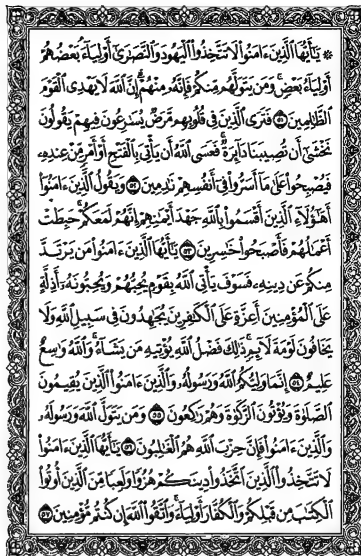 ۞ يَٰٓأَيُّهَا ٱلَّذِينَ ءَامَنُوا۟ لَا تَتَّخِذُوا۟ ٱلْيَهُودَ وَٱلنَّصَٰرَىٰٓ أَوْلِيَآءَ ۘ بَعْضُهُمْ
أَوْلِيَآءُ بَعْضٍ ۚ وَمَن يَتَوَلَّهُم مِّنكُمْ فَإِنَّهُۥ مِنْهُمْ ۗ إِنَّ ٱللَّهَ لَا يَهْدِى ٱلْقَوْمَ
ٱلظَّٰلِمِينَ ٥١ فَتَرَى ٱلَّذِينَ فِى قُلُوبِهِم مَّرَضٌ يُسَٰرِعُونَ فِيهِمْ يَقُولُونَ
نَخْشَىٰٓ أَن تُصِيبَنَا دَآئِرَةٌ ۚ فَعَسَى ٱللَّهُ أَن يَأْتِىَ بِٱلْفَتْحِ أَوْ أَمْرٍ مِّنْ عِندِهِۦ
فَيُصْبِحُوا۟ عَلَىٰ مَآ أَسَرُّوا۟ فِىٓ أَنفُسِهِمْ نَٰدِمِينَ ٥٢ وَيَقُولُ ٱلَّذِينَ ءَامَنُوٓا۟
أَهَٰٓؤُلَآءِ ٱلَّذِينَ أَقْسَمُوا۟ بِٱللَّهِ جَهْدَ أَيْمَٰنِهِمْ ۙ إِنَّهُمْ لَمَعَكُمْ ۚ حَبِطَتْ
أَعْمَٰلُهُمْ فَأَصْبَحُوا۟ خَٰسِرِينَ ٥٣ يَٰٓأَيُّهَا ٱلَّذِينَ ءَامَنُوا۟ مَن يَرْتَدَّ
مِنكُمْ عَن دِينِهِۦ فَسَوْفَ يَأْتِى ٱللَّهُ بِقَوْمٍ يُحِبُّهُمْ وَيُحِبُّونَهُۥٓ أَذِلَّةٍ
عَلَى ٱلْمُؤْمِنِينَ أَعِزَّةٍ عَلَى ٱلْكَٰفِرِينَ يُجَٰهِدُونَ فِى سَبِيلِ ٱللَّهِ وَلَا
يَخَافُونَ لَوْمَةَ لَآئِمٍ ۚ ذَٰلِكَ فَضْلُ ٱللَّهِ يُؤْتِيهِ مَن يَشَآءُ ۚ وَٱللَّهُ وَٰسِعٌ
عَلِيمٌ ٥٤ إِنَّمَا وَلِيُّكُمُ ٱللَّهُ وَرَسُولُهُۥ وَٱلَّذِينَ ءَامَنُوا۟ ٱلَّذِينَ يُقِيمُونَ
ٱلصَّلَوٰةَ وَيُؤْتُونَ ٱلزَّكَوٰةَ وَهُمْ رَٰكِعُونَ ٥٥ وَمَن يَتَوَلَّ ٱللَّهَ وَرَسُولَهُۥ
وَٱلَّذِينَ ءَامَنُوا۟ فَإِنَّ حِزْبَ ٱللَّهِ هُمُ ٱلْغَٰلِبُونَ ٥٦ يَٰٓأَيُّهَا ٱلَّذِينَ ءَامَنُوا۟
لَا تَتَّخِذُوا۟ ٱلَّذِينَ ٱتَّخَذُوا۟ دِينَكُمْ هُزُوًا وَلَعِبًا مِّنَ ٱلَّذِينَ أُوتُوا۟
ٱلْكِتَٰبَ مِن قَبْلِكُمْ وَٱلْكُفَّارَ أَوْلِيَآءَ ۚ وَٱتَّقُوا۟ ٱللَّهَ إِن كُنتُم مُّؤْمِنِينَ ٥٧